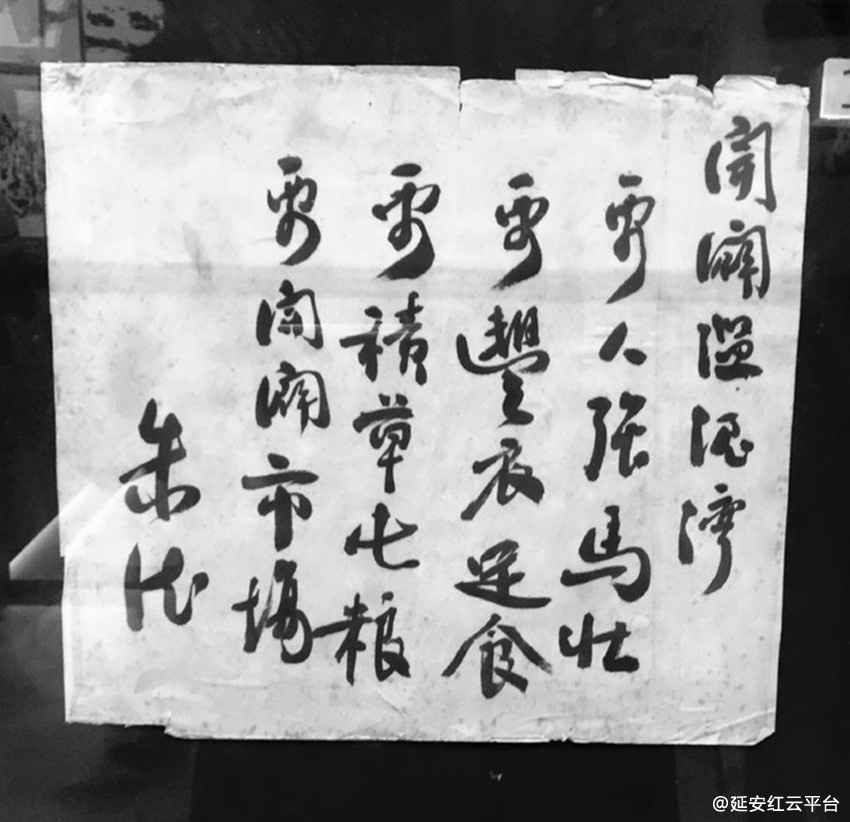 開闢滥泥湾
要人强馬壮
要豐衣足食
要積草屯粮
要開闢市場
朱德
@延安红云平台